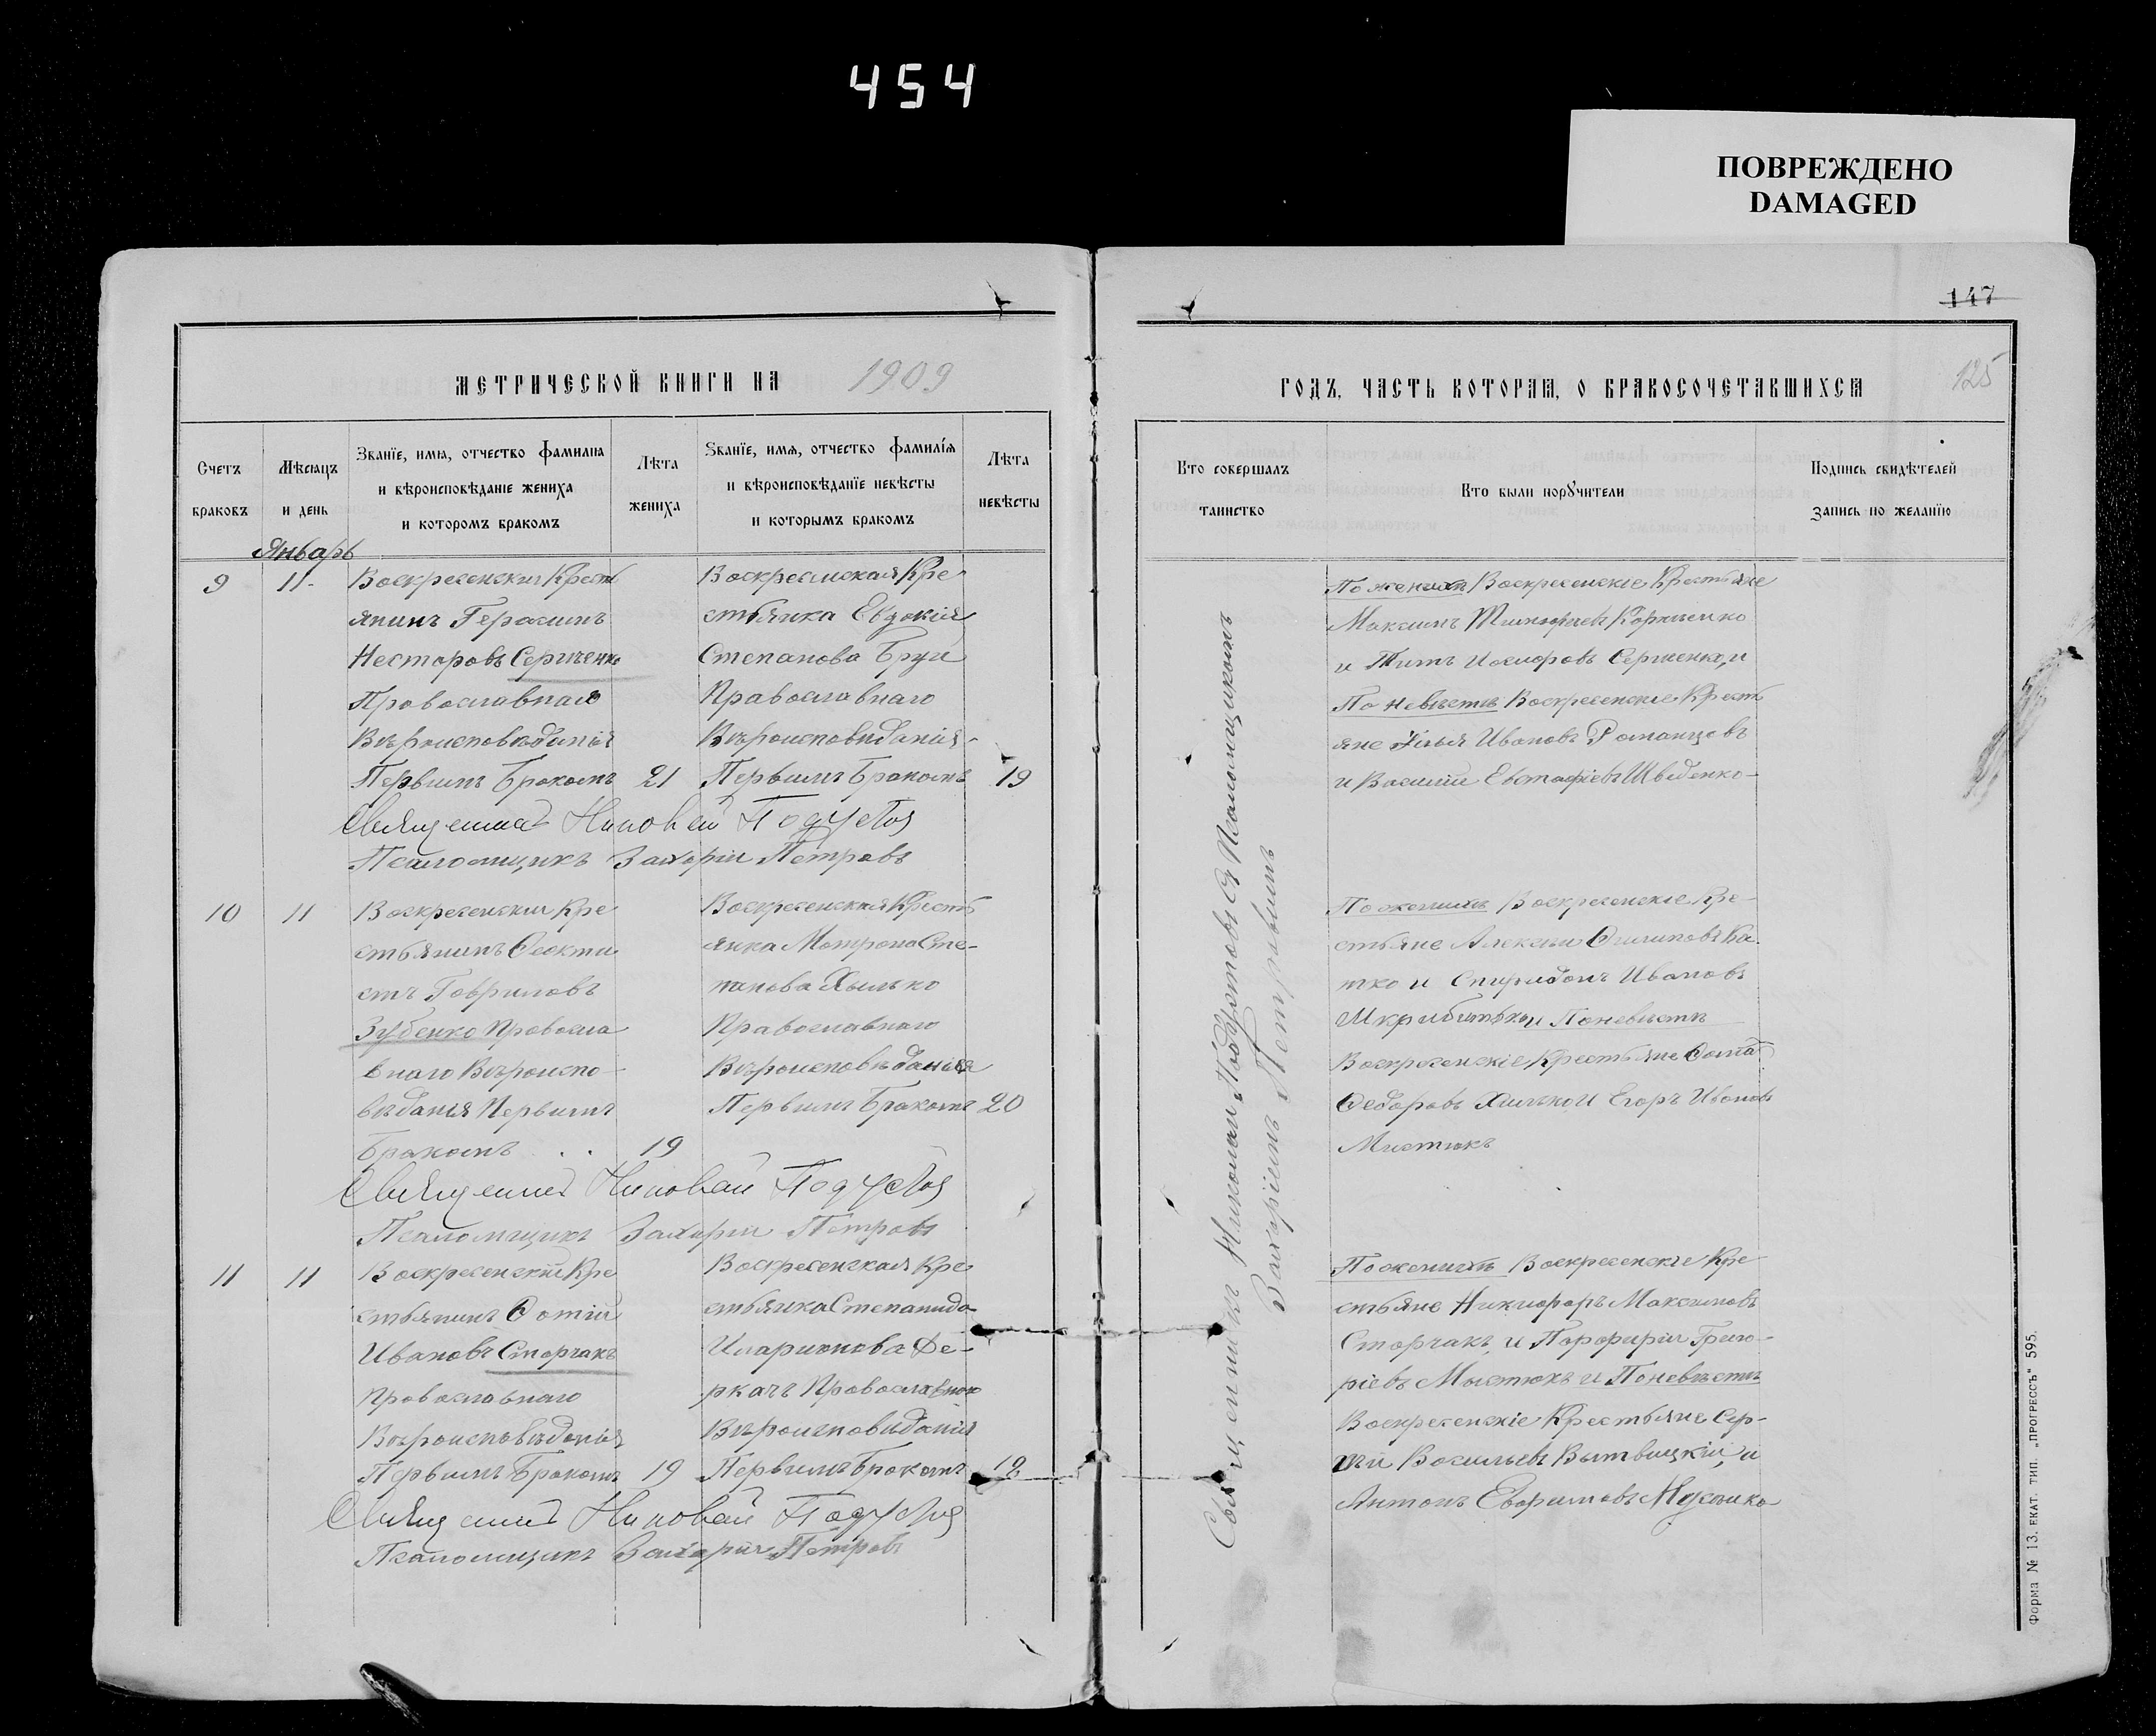 454
ПОВРЕЖДЕНО
DAMAGED
147
МЕТРИЧЕСКОЙ КНИГИ НА 1909
Счетъ браковъ
Мѣсяцъ и день
Званїе, имя, отчество фамилїя
и вѣроисповѣданїе жениха
и которомъ бракомъ
Лѣта жениха
Званїе, имя, отчество фамилїя
и вѣроисповѣданїе невѣсты
и которымъ бракомъ
Лѣта невѣсты
Январь
9 11 Воскресенскій Крест
янинъ Герасимъ
Несторовъ Сергіенко
Православнаго
Вѣроисповѣданія
Первымъ Бракомъ 21
Воскресенская Кре
стьянка Евдокія
Степанова
Православнаго
Вѣроисповѣданія
Первымъ Бракомъ 19
Священникъ Николай Подустов
Псаломщикъ Захарій Петровъ
10 11 Воскресенскій Кре
стьянинъ Ѳеокти
стъ Гавриловъ
Зубенко Правосла
внаго Вѣроиспо
вѣданія Первымъ
Бракомъ 19
Воскресенская Кресть
янка Матрона Сте-
панова Хилько
Православнаго
Вѣроисповѣданія
Первымъ Бракомъ 20
Священникъ Николай Подустов
Псаломщикъ Захарій Петровъ
11 11 Воскресенскій Кре
стьянинъ Ѳотій
Ивановъ Сторчакъ
Православнаго
Вѣроисповѣданія
Первымъ Бракомъ 19
Воскресенская Кре
стьянка Степанида
Иларионова Де-
ркачъ Православнаго
Вѣроисповѣданія
Первымъ Бракомъ
Священникъ Николай Подустов
Псаломщикъ Захарій Петровъ
ГОДЪ, ЧАСТЬ ВТОРАЯ, О БРАКОСОЧЕТАВШИХСЯ
125
Кто совершалъ таинство
Кто были поручители
Подпись свидѣтелей
запись по желанїю
Священникъ Николай Подустовъ Съ Псаломщикомъ
Захаріемъ Петровымъ
По женихѣ Воскресенскіе Крестьяне
Максимъ Тимофѣевъ Корниенко
и Титъ Сергіенко, и
По невѣстѣ Воскресенскіе Кресть
яне Илья Ивановъ Романцовъ
и Василій Евстафіевъ Шведенко
По женихѣ Воскресенскіе Кре-
стьяне Алексѣй Филиповъ
и Спиридонъ Ивановъ
и По невѣстѣ
Воскресенскіе Крестьяне
Ѳедоровъ Хилько и Егоръ Ивановъ
По женихѣ Воскресенскіе Кре
стьяне Никифоръ Максимовъ
Сторчакъ, и Порфирій Григо-
ріевъ и По невѣстѣ
Воскресенскіе Крестьяне Сер-
гѣй Васильевъ Вытвицкій, и
Антонъ Ефимовъ
Форма № 13. ЕКАТ. ТИП. „ПРОГРЕССЪ" 595.